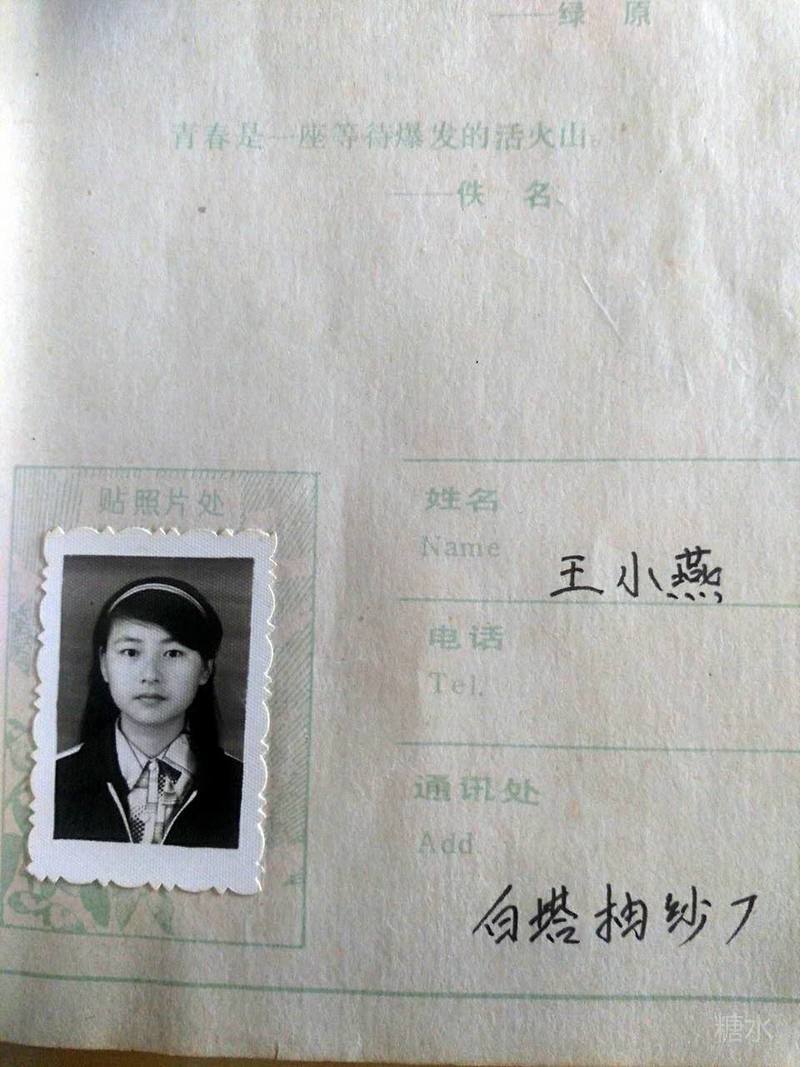 ——绿 原
青春是一座等待爆发的活火山。
——佚 名
贴照片处
姓名
Name
王小燕
电话
Tel.
通讯处
Add
白塔抽纱厂
糖水